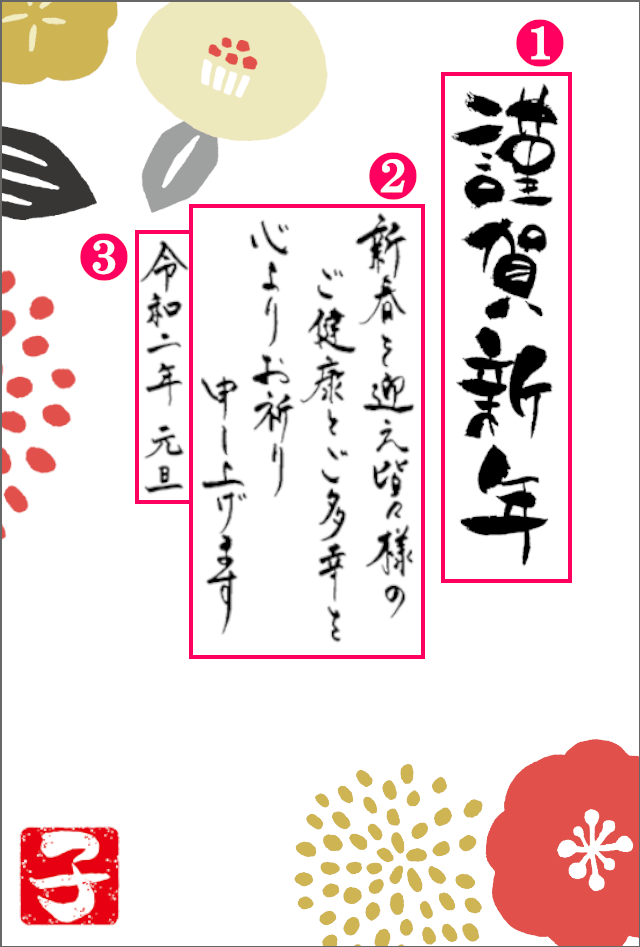 1
謹賀新年
2
新春を迎え皆々様の
ご健康とご多幸を
心よりお祈り
申し上げます
3
令和二年 元旦
子